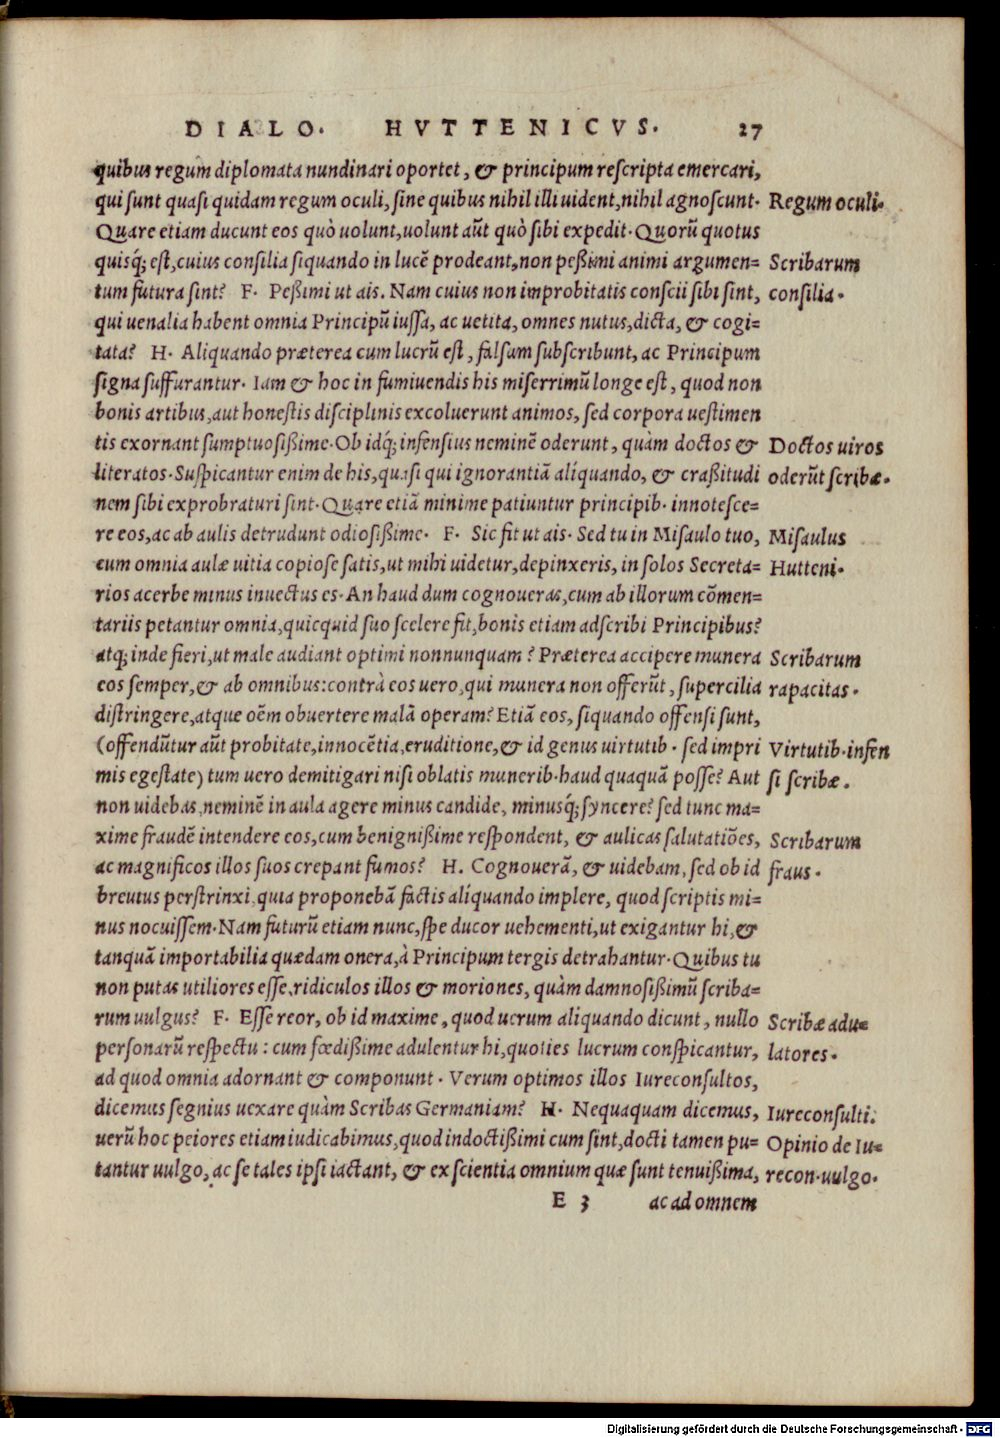 DIALO. HVTTENICVS. 27
quibus regum diplomata nundinari oportet, & principum rescripta emercari,
qui sunt quasi quidam regum oculi, sine quibus nihil illi uident, nihil agnoscunt. Regum oculi.
Quare etiam ducunt eos quò uolunt, uolunt aũt quò sibi expedit. Quorũ quotus
quisq́; est, cuius consilia siquando in lucẽ prodeant, non peßimi animi argumen= Scribarum
tum futura sint? F. Peßimi ut ais. Nam cuius non improbitatis conscii sibi sint, consilia.
qui uenalia habent omnia Principũ iussa, ac uetita, omnes nutus, dicta, & cogi=
tata? H. Aliquando præterea cum lucrũ est, falsum subscribunt, ac Principum
signa suffurantur. Iam & hoc in fumiuendis his miserrimũ longe est, quod non
bonis artibus, aut honestis disciplinis excoluerunt animos, sed corpora uestimen
tis exornant sumptuosißime. Ob idq́; infensius neminẽ oderunt, quàm doctos & Doctos uiros
literatos. Suspicantur enim de his, quasi qui ignorantiã aliquando, & craßitudi oderũt scribæ.
nem sibi exprobraturi sint. Quare etiã minime patiuntur principib. innotesce=
re eos, ac ab aulis detrudunt odiosißime. F. Sic fit ut ais. Sed tu in Misaulo tuo, Misaulus
cum omnia aulæ uitia copiose satis, ut mihi uidetur, depinxeris, in solos Secreta= Hutteni.
rios acerbe minus inuectus es. An haud dum cognoueras, cum ab illorum cõmen=
tariis petantur omnia, quicquid suo scelere fit, bonis etiam adscribi Principibus?
atq; inde fieri, ut male audiant optimi nonnunquam? Præterea accipere munera Scribarum
eos semper, & ab omnibus: contrà eos uero, qui munera non offerũt, supercilia rapacitas.
distringere, atque oẽm obuertere malã operam? Etiã eos, siquando offensi sunt,
(offendũtur aũt probitate, innocẽtia, eruditione, & id genus uirtutib. sed impri Virtutib. infen
mis egestate) tum uero demitigari nisi oblatis munerib. haud quaquã posse? Aut si scribæ.
non uidebas, neminẽ in aula agere minus candide, minusq́; syncere? sed tunc ma=
xime fraudẽ intendere eos, cum benignißime respondent, & aulicas salutatiões, Scribarum
ac magnificos illos suos crepant fumos? H. Cognouerã, & uidebam, sed ob id fraus.
breuius perstrinxi, quia proponebã factis aliquando implere, quod scriptis mi=
nus nocuissem. Nam futurũ etiam nunc, spe ducor uehementi, ut exigantur hi, &
tanquã importabilia quædam onera, à Principum tergis detrahantur. Quibus tu
non putas utiliores esse, ridiculos illos & moriones, quàm damnosißimũ scriba=
rum uulgus? F. Esse reor, ob id maxime, quod uerum aliquando dicunt, nullo Scribæ adu=
personarũ respectu: cum fœdißime adulentur hi, quoties lucrum conspicantur, latores.
ad quod omnia adornant & componunt. Verum optimos illos Iureconsultos,
dicemus segnius uexare quàm Scribas Germaniam? H. Nequaquam dicemus, Iureconsulti.
uerũ hoc peiores etiam iudicabimus, quod indoctißimi cum sint, docti tamen pu= Opinio de Iu=
tantur uulgo, ac se tales ipsi iactant, & ex scientia omnium quæ sunt tenuißima, recon. uulgo.
E 3 ac ad omnem
Digitalisierung gefördert durch die Deutsche Forschungsgemeinschaft - DFG